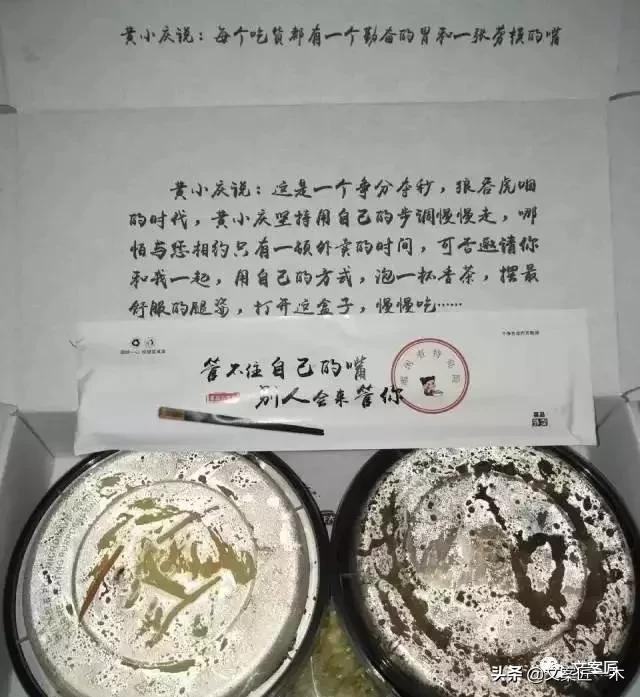 黄小庆说：每个吃货都有一个勤奋的胃和一张劳模的嘴
黄小庆说：这是一个争分夺秒，狼吞虎咽
的时代，黄小庆坚持用自己的步调慢慢走，哪
怕与您相约只有一顿外卖的时间，可否邀请你
和我一起，用自己的方式，泡一杯香茶，摆最
舒服的腿姿，打开这盒子，慢慢吃……
管不住自己的嘴
别人会来管你
头条 @文案匠一木
文案匠